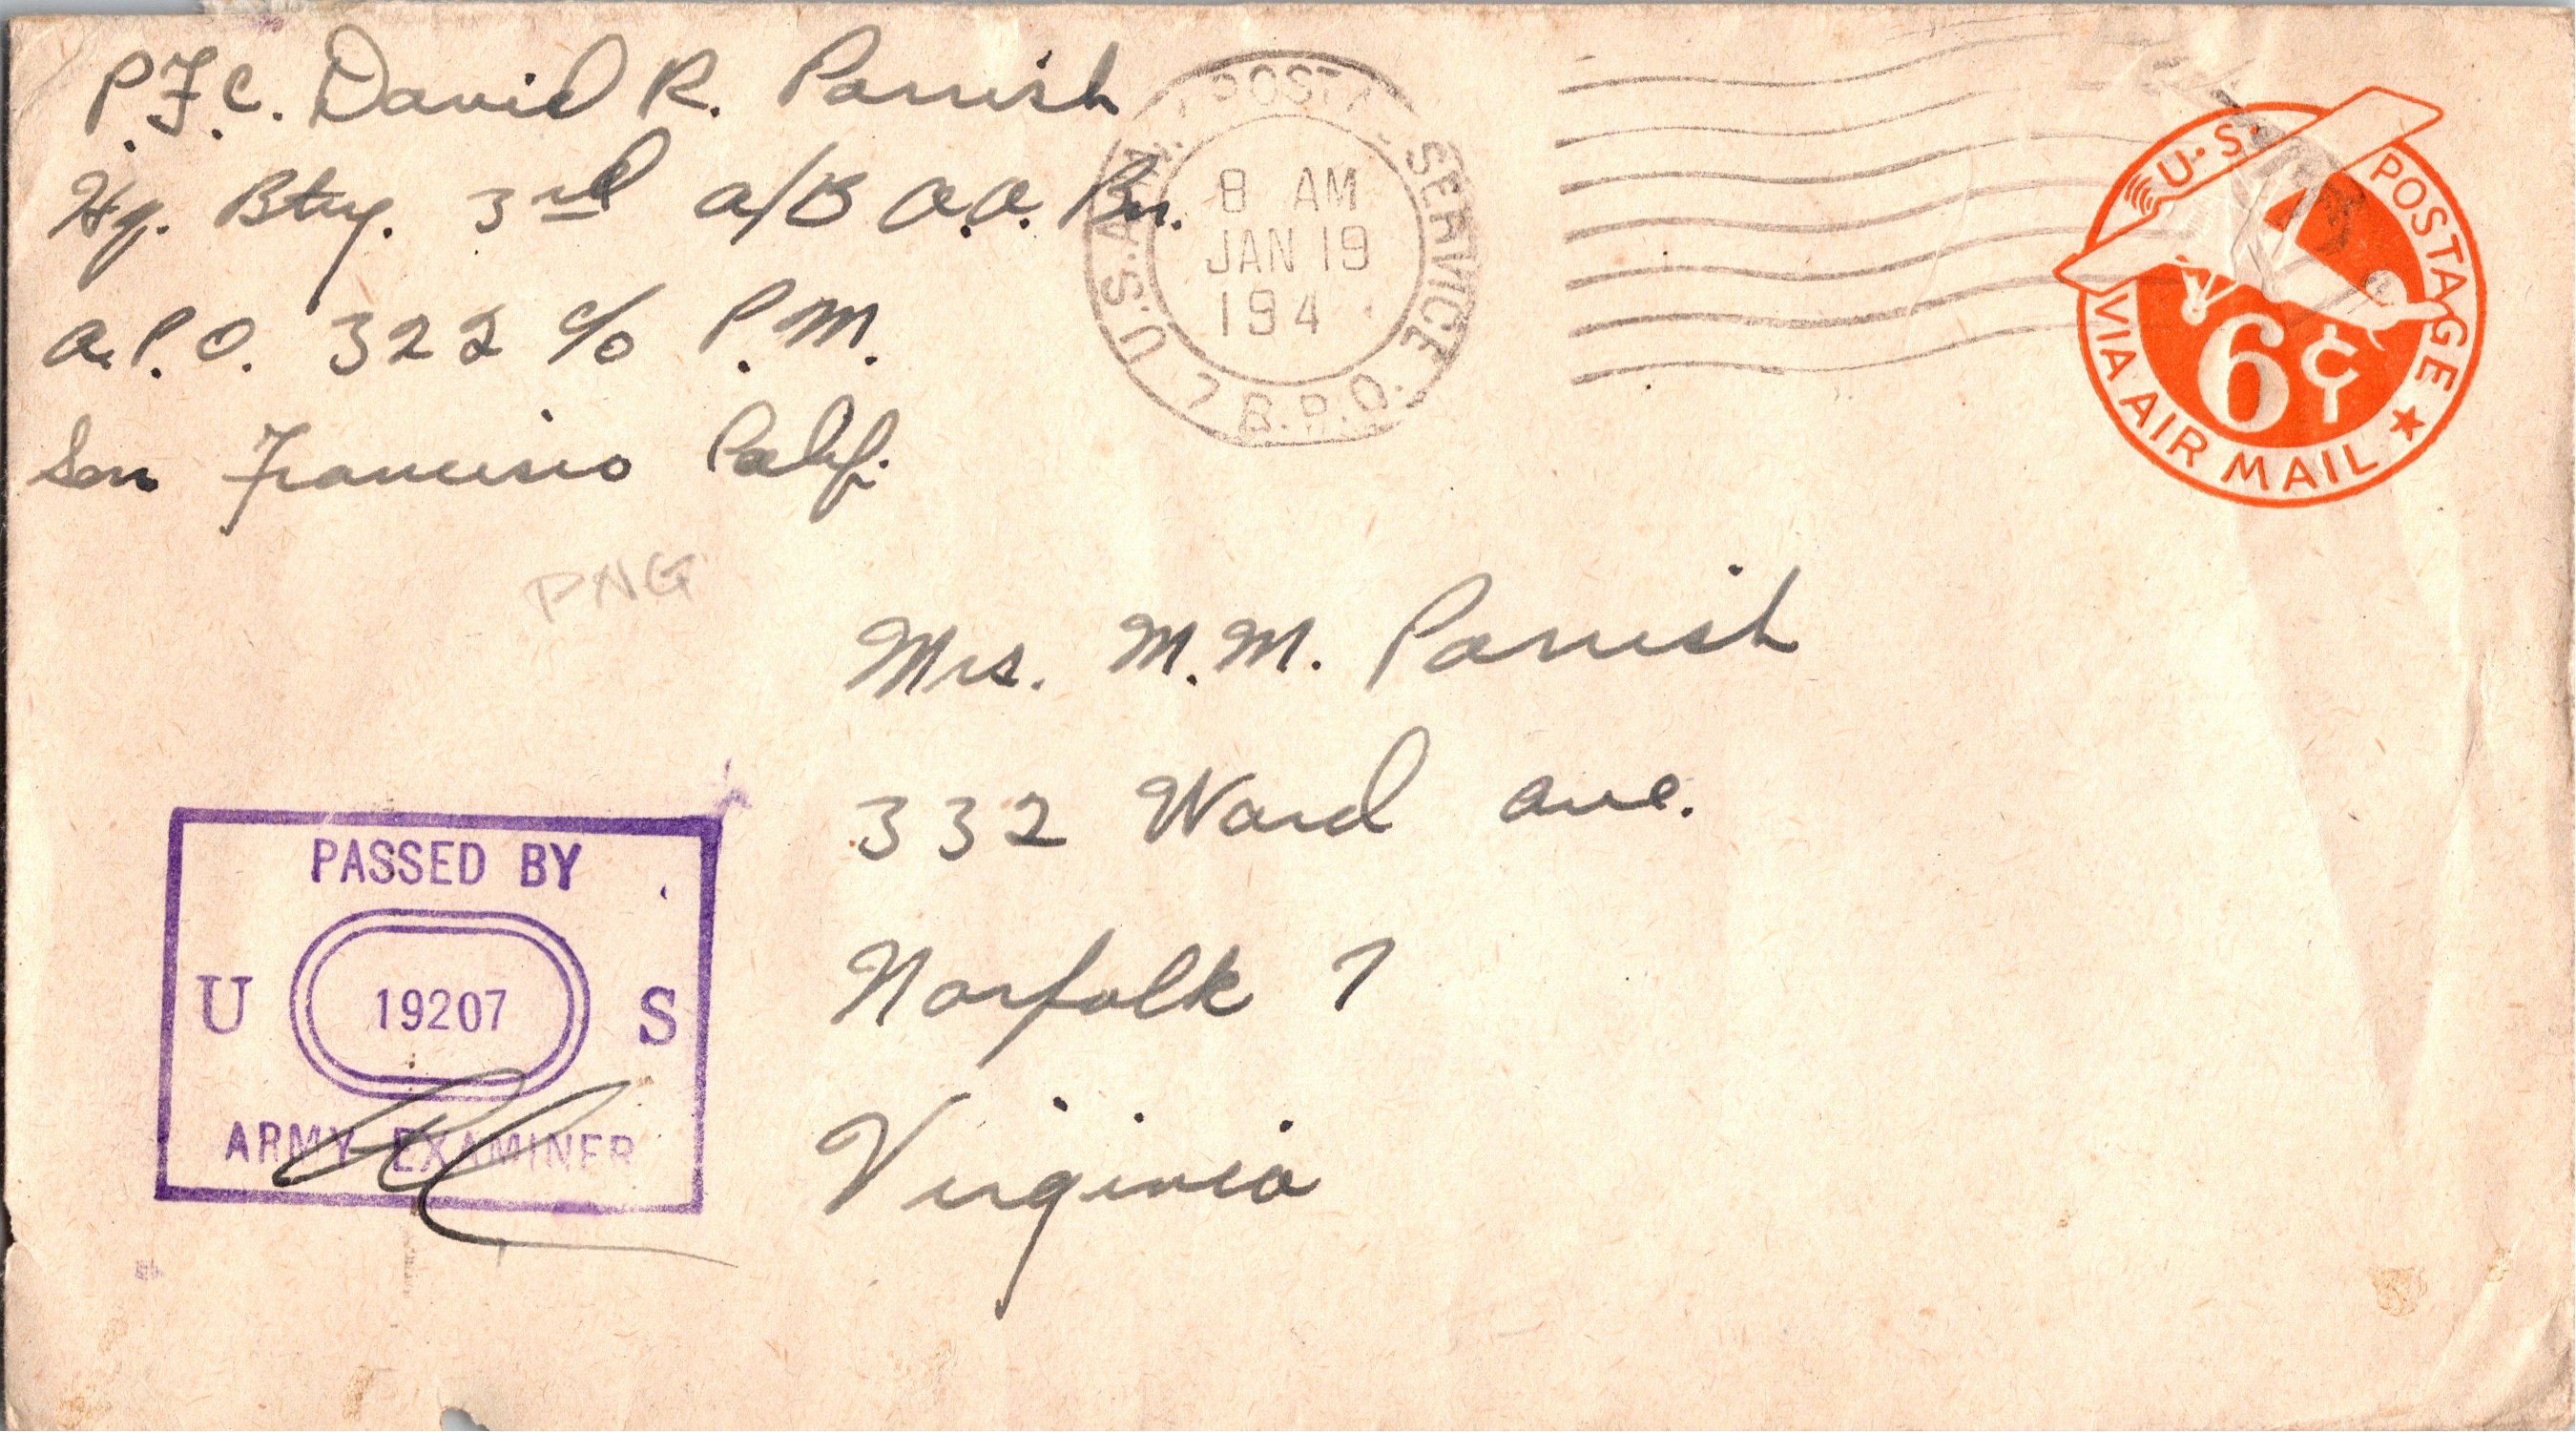 P.F.C. David R. Parrish
Hq. Btry. 3rd a/B a.a. Bn.
a.P.O. 322 c/o P.M.
San Francisco Calif.
PNG
U.S. ARMY POSTAL SERVICE
7 B.P.O.
8 AM
JAN 19
194
U.S. POSTAGE
6¢
VIA AIR MAIL
Mrs. M.M. Parrish
332 Ward ave.
Norfolk 7
Virginia
PASSED BY
U 19207 S
ARMY EXAMINER